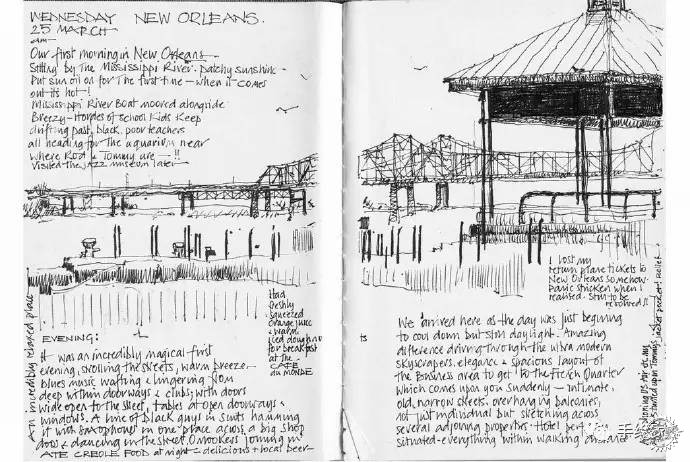 WEDNESDAY NEW ORLEANS.
25 MARCH
am
Our first morning in New Orleans
Sitting by The Mississippi River. Patchy sunshine
Put sun oil on for The first time — when it comes
out its hot-!
Mississippi River Boat moored alongside
Breezy - Hordes of school kids keep
drifting past, black, poor teachers
all heading for The aquarium near
where Rod & Tommy are —!!
Visited the JAZZ museum later
An incredibly relaxed place
EVENING:
it was an incredibly magical first
evening, strolling the streets, warm breeze
blues music wafting & lingering from
deep within doorways & clubs, with doors
wide open to the street, tables at open doorways &
windows. A line of black guys in suits hamming
it with saxophones in one place across a big shop
door & dancing in the street. Onlookers joining in
ATE CREOLE FOOD at night — delicious + local beer
Had
freshly
squeezed
orange juice
& warm
iced doughnut
for breakfast
at the
CAFE
du MONDE
I lost my
return plane tickets to
New Orleans somehow.
Panic stricken when I
realised. Still to be
resolved!!
ts
We arrived here as the day was just beginning
to cool down but still daylight. Amazing
difference driving through the ultra modern
skyscrapers, elegance & spacious layout of
the Business area to get to the French Quarter
which comes upon you suddenly — intimate,
old, narrow streets, overhanging balconies,
not just individual but stretching across
several adjoining properties. Hotel
situated - everything within walking distance
Tommy's jacket pocket!